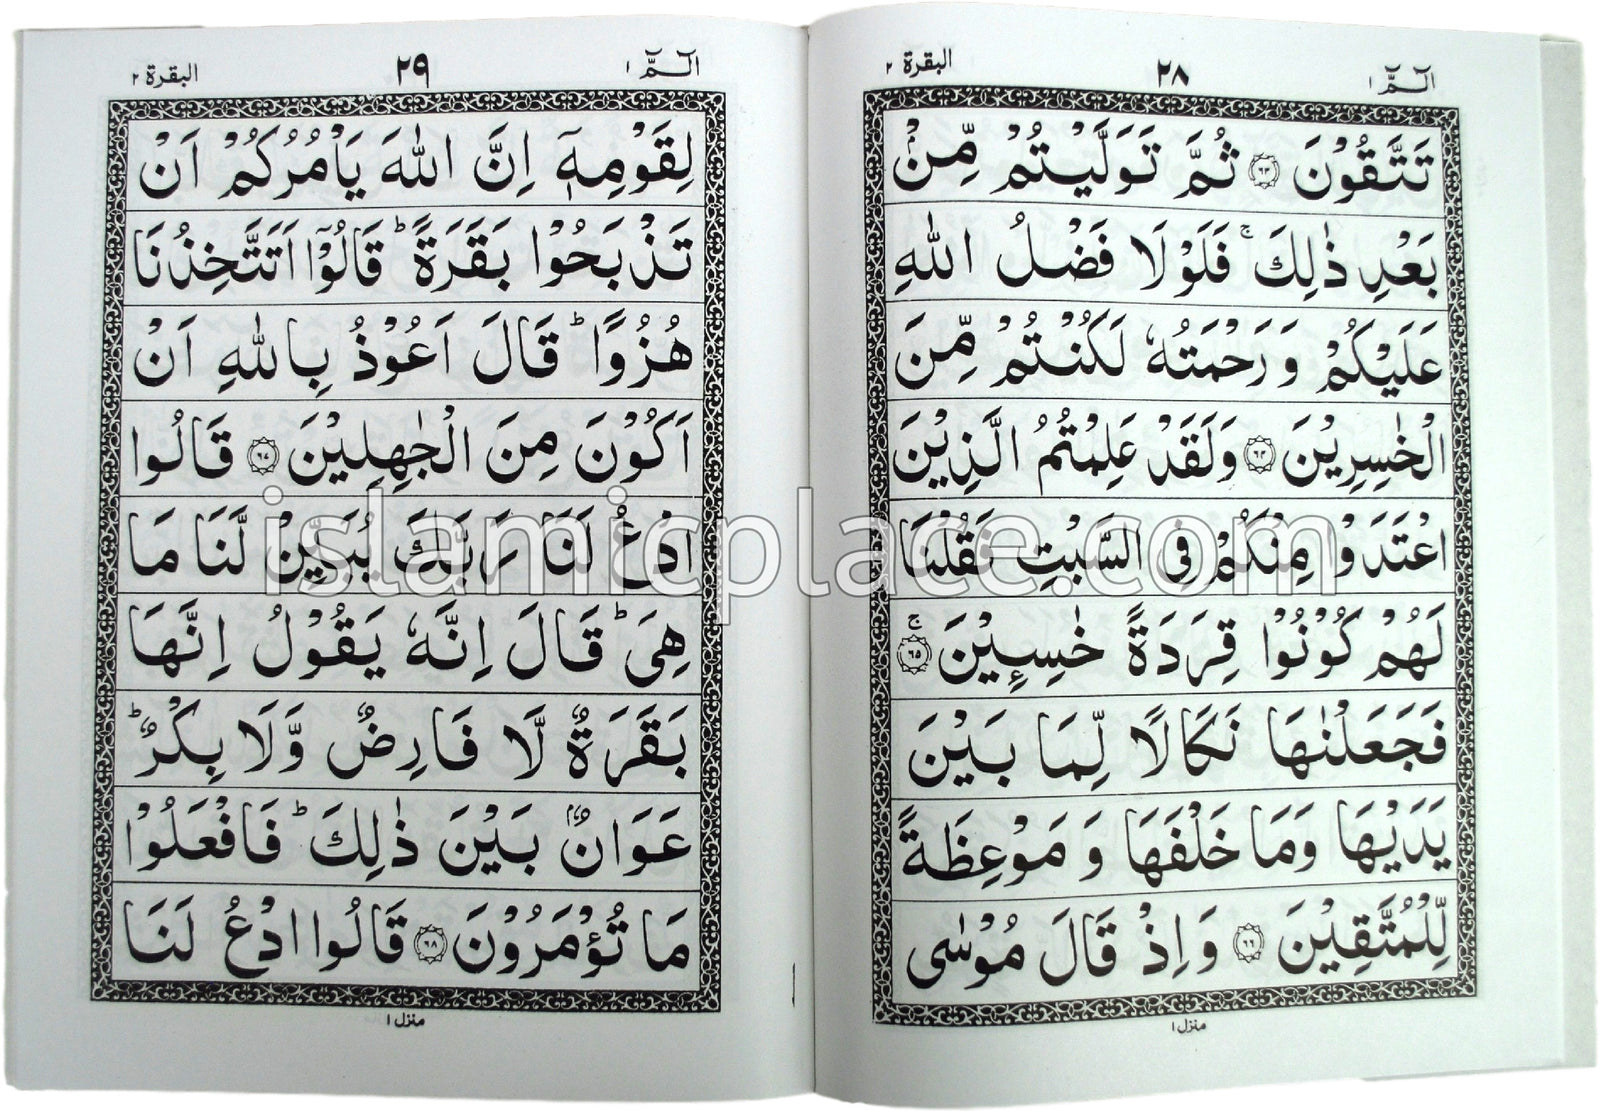 الٓمّٓ ١ ٢٨ البقرة ٢
تَتَّقُوْنَ ﴿٦٣﴾ ثُمَّ تَوَلَّيْتُمْ مِّنْۢ
بَعْدِ ذٰلِكَ ۚ فَلَوْلَا فَضْلُ اللّٰهِ
عَلَيْكُمْ وَرَحْمَتُهٗ لَكُنْتُمْ مِّنَ
الْخٰسِرِيْنَ ﴿٦٤﴾ وَلَقَدْ عَلِمْتُمُ الَّذِيْنَ
اعْتَدَوْا مِنْكُمْ فِى السَّبْتِ فَقُلْنَا
لَهُمْ كُوْنُوْا قِرَدَةً خٰسِـِٕيْنَ ﴿٦٥﴾ ۚ
فَجَعَلْنٰهَا نَكَالًا لِّمَا بَيْنَ
يَدَيْهَا وَمَا خَلْفَهَا وَ مَوْعِظَةً
لِّلْمُتَّقِيْنَ ﴿٦٦﴾ وَاِذْ قَالَ مُوْسٰى
منزل ١
الٓمّٓ ١ ٢٩ البقرة ٢
لِقَوْمِهٖٓ اِنَّ اللّٰهَ يَاْمُرُكُمْ اَنْ
تَذْبَحُوْا بَقَرَةً ؕ قَالُوْٓا اَتَتَّخِذُنَا
هُزُوًا ؕ قَالَ اَعُوْذُ بِاللّٰهِ اَنْ
اَكُوْنَ مِنَ الْجٰهِلِيْنَ ﴿٦٧﴾ قَالُوا
ادْعُ لَنَا رَبَّكَ يُبَيِّنْ لَّنَا مَا
هِىَ ؕ قَالَ اِنَّهٗ يَقُوْلُ اِنَّهَا
بَقَرَةٌ لَّا فَارِضٌ وَّلَا بِكْرٌ ؕ
عَوَانٌۢ بَيْنَ ذٰلِكَ ؕ فَافْعَلُوْا
مَا تُؤْمَرُوْنَ ﴿٦٨﴾ قَالُوا ادْعُ لَنَا
منزل ١
islamicplace.com